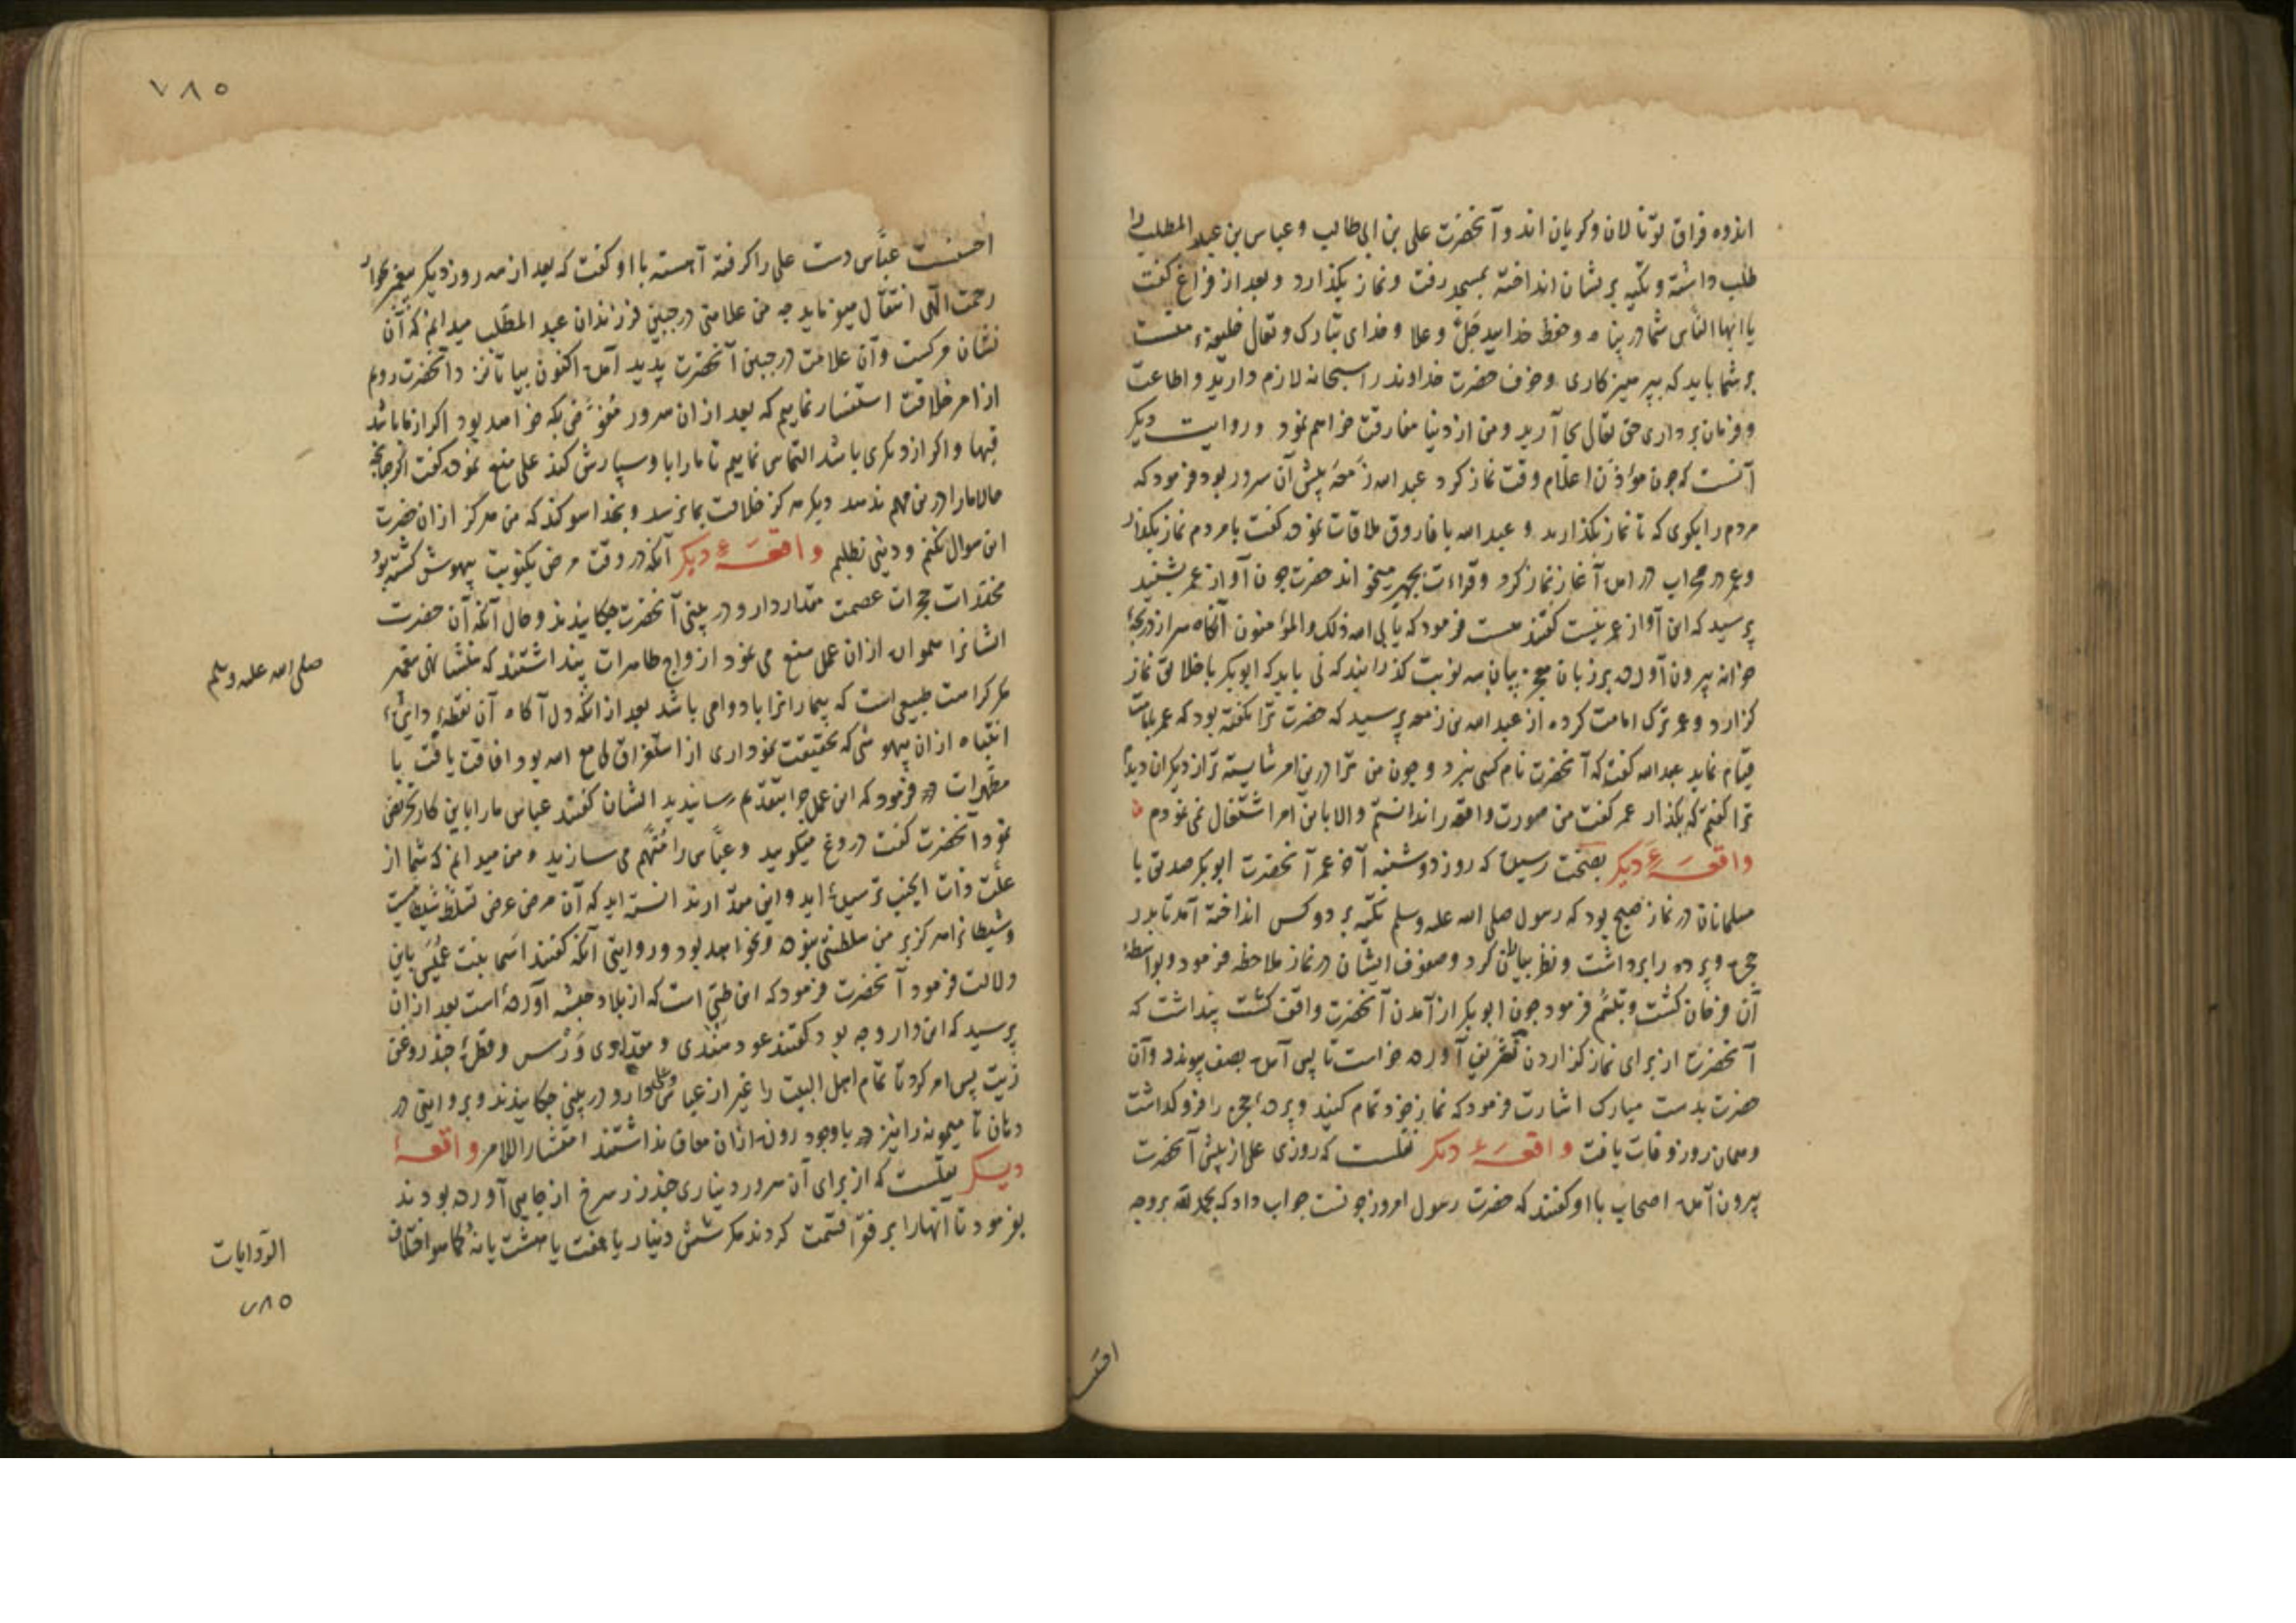 اندوه فراق تو نالان و کریان اند و آنحضرت علی بن ابی طالب و عباس بن عبد المطلب را
طلب داشته و تکیه بریشان انداخته بمسجد رفت و نماز بگذارد و بعد از فراغ گفت
یا ایها الناس شما در پناه و حفظ خدایید جل و علا و خدای تبارک و تعالی خلیفهٔ منست
بر شما باید که بپرهیزکاری و خوف حضرت خداوند را سبحانه لازم دارید و اطاعت
و فرمان برداری حق تعالی بجا آرید و من از دنیا مفارقت خواهم نمود و روایت دیگر
آنست که چون مؤذن اعلام وقت نماز کرد عبد الله زمعه پیش آن سرور بود فرمود که
مردم را بگوی که تا نماز بگذارند و عبد الله با فاروق ملاقات نموده گفت با مردم نماز بگذار
و عمر در محراب در آمده آغاز نماز کرد و قراءت بجهر میخواند حضرت چون آواز عمر بشنید
پرسید که این آواز عمر نیست گفتند هست فرمود که یابی الله ذلک والمؤمنون آنگاه سر از دریچهٔ
خانه بیرون آورده بر زبان معجز بیان سه نوبت گذرانید که نی باید که ابوبکر با خلایق نماز
گزارد و عمر ترک امامت کرده از عبد الله بن زمعه پرسید که حضرت ترا نگفته بود که عمر بامامت
قیام نماید عبد الله گفت که آنحضرت نام کسی نبرد و چون من ترا درین امر شایسته تر از دیگران دیدم
ترا گفتم که بگذار عمر گفت من صورت واقعه را ندانستم و الا باین امر اشتغال نمی نمودم
واقعهٔ دیگر بصحت رسیده که روز دوشنبه آخر عمر آنحضرت ابوبکر صدیق با
مسلمانان در نماز صبح بود که رسول صلی الله علیه وسلم تکیه بر دو کس انداخته آمد تا بدر
حجره و پرده را برداشت و نظر بیاران کرد و صفوف ایشان در نماز ملاحظه فرمود و بواسطهٔ
آن فرحان گشت و تبسم فرمود چون ابوبکر از آمدن آنحضرت واقف گشت پنداشت که
آنحضرت از برای نماز گزاردن تشریف آورده خواست تا پس آمده بصف پیوندد و آن
حضرت بدست مبارک اشارت فرمود که نماز خود تمام کنید و پردهٔ حجره را فرو گذاشت
و همان روز وفات یافت واقعهٔ دیگر نقلست که روزی علی از پیش آنحضرت
بیرون آمده اصحاب با او گفتند که حضرت رسول امروز چونست جواب داد که بحمد لله بر وجه
۷۸۵
احسنست عباس دست علی را گرفته آهسته با او گفت که بعد از سه روز دیگر پیغمبر بجوار
رحمت الهی انتقال مینماید چه من علامتی در جبین فرزندان عبد المطلب میدانم که آن
نشان مرگست و آن علامت در جبین آنحضرت پدید آمده اکنون بیا تا نزد آنحضرت رویم
از امر خلافت استفسار نماییم که بعد از آن سرور مفوض بکه خواهد بود اگر از ما باشد
فبها و اگر از دیگری باشد التماس نماییم تا ما را باو سپارش کند علی منع نموده گفت اگر چنانچه
حالا ما را درین مهم ندهد دیگر هرگز خلافت بما نرسد و بخدا سوگند که من هرگز از آن حضرت
این سوال نکنم و دنیی نطلبم واقعهٔ دیگر آنکه در وقت مرض یکنوبت بیهوش گشته بود
مخدرات حجرات عصمت مقدار دارو در بینی آنحضرت چکانیدند و حال آنکه آن حضرت
ایشانرا همواره از آن عمل منع می نمود ازواج طاهرات پنداشتند که منشا نهی پیغمبر
مگر کراهت طبیعی است که بیمارانرا با دوا می باشد بعد از آنکه دل آگاه آن نقطهٔ دایرهٔ
انتباه از آن بیهوشی که بحقیقت نموداری از استغراق لی مع الله بود افاقت یافت با
مطهرات فرمود که این عمل چرا بتقدیم رسانیدید ایشان گفتند عباس ما را باین کار تحریض
نمود آنحضرت گفت دروغ میگویید و عباس را متهم می سازید و من میدانم که شما از
علت ذات الجنب ترسیده اید و این مقدار ندانسته اید که آن مرض عرض تسلط شیطانیست
و شیطانرا هرگز بر من سلطنتی نبوده و نخواهد بود و روایتی آنکه گفتند اسما بنت عمیس باین
دلالت فرمود آنحضرت فرمود که این طبی است که از بلاد حبشه آورده است بعد از آن
پرسید که این دارو چه بود گفتند عود هندی و مقداری ورس و قطرهٔ چند روغن
زیت پس امر کرد تا تمام اهل البیت را غیر از عباس دارو در بینی چکانیدند و بروایتی در
دهان تا میمونه را نیز با وجود روزه از آن معاف نداشتند امتثارا للامر واقعهٔ
دیگر نقلست که از برای آن سرور دیناری چند زر سرخ از جایی آورده بودند
بفرمود تا آنها را بر فقرا قسمت کردند مگر شش دینار یا هفت یا هشت یا نه کما هو اختلاف
صلی الله علیه وسلم
الروایات
۷۸۵